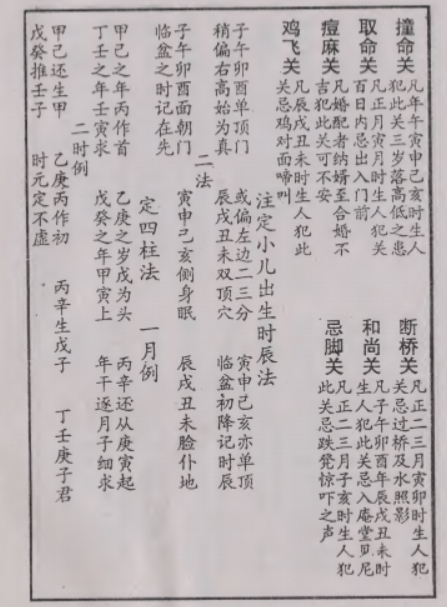 撞命关
凡年午寅申己亥时生人
犯此关三岁落高低之患
取命关
凡正月寅月时生人犯关
百日内忌出入门前
痘麻关
凡婚配者纳婿至合婚不
吉犯此关可不安
鸡飞关
凡辰戌丑未时生人犯此
关忌鸡对面啼叫
断桥关
凡正二三月寅卯时生人犯
关忌过桥及水照影
和尚关
凡子午卯酉年辰戌丑未时
生人犯此关忌入庵堂见尼
忌脚关
凡正二三月子亥时生人犯
此关忌跌凳惊吓之声
注定小儿出生时辰法
子午卯酉单顶门 或偏左边二三分 寅申己亥亦单顶
稍偏右高始为真 辰戌丑未双顶穴 临盆初降记时辰
二法
子午卯酉面朝门 寅申己亥侧身眠 辰戌丑未脸仆地
临盆之时记在先
定四柱法 一月例
甲己之年丙作首 乙庚之岁戊为头 丙辛还从庚寅起
丁壬之年壬寅求 戊癸之年甲寅上 年干逐月子细求
二时例
甲己还生甲 乙庚丙作初 丙辛生戊子 丁壬庚子君
戊癸推壬子 时元定不虚